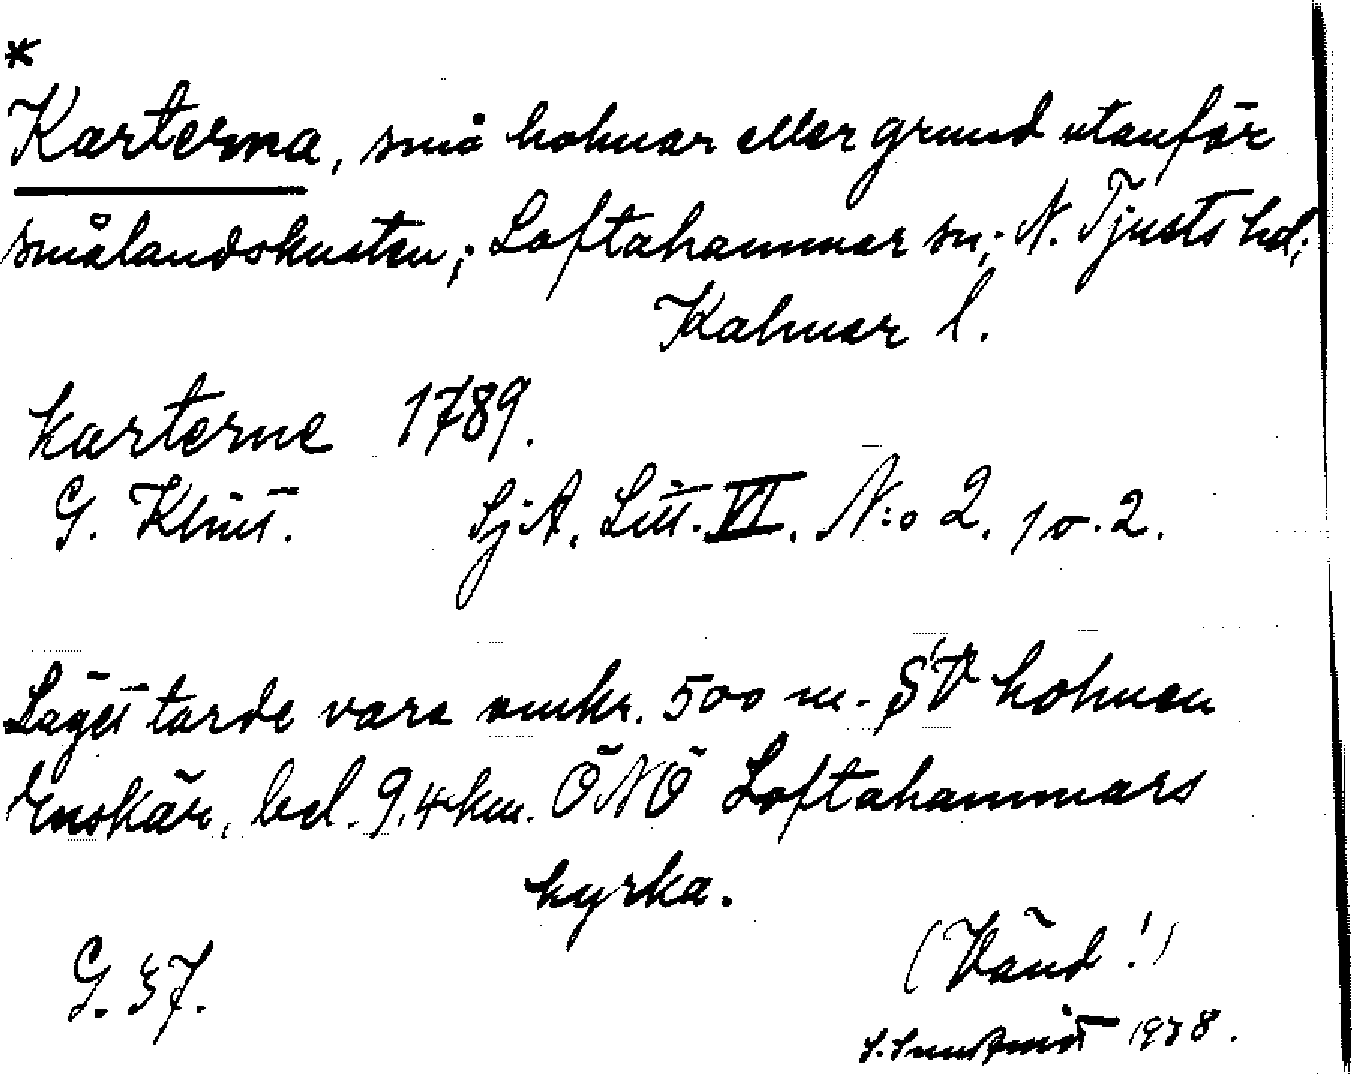 *
Karterna, små holmar eller grund utanför
smålandskusten; Loftahammar sn; N. Tjusts hd;
Kalmar l.
karterne 1789.
G. Klint. SjA. Litt. VI. N:o 2. 1 o. 2.
Läget torde vara omkr. 500 m. SV holmen
Enskär, bel. 9,4 km. ÖNÖ Loftahammars
kyrka.
G. 37.
(Vänd!)
1938.